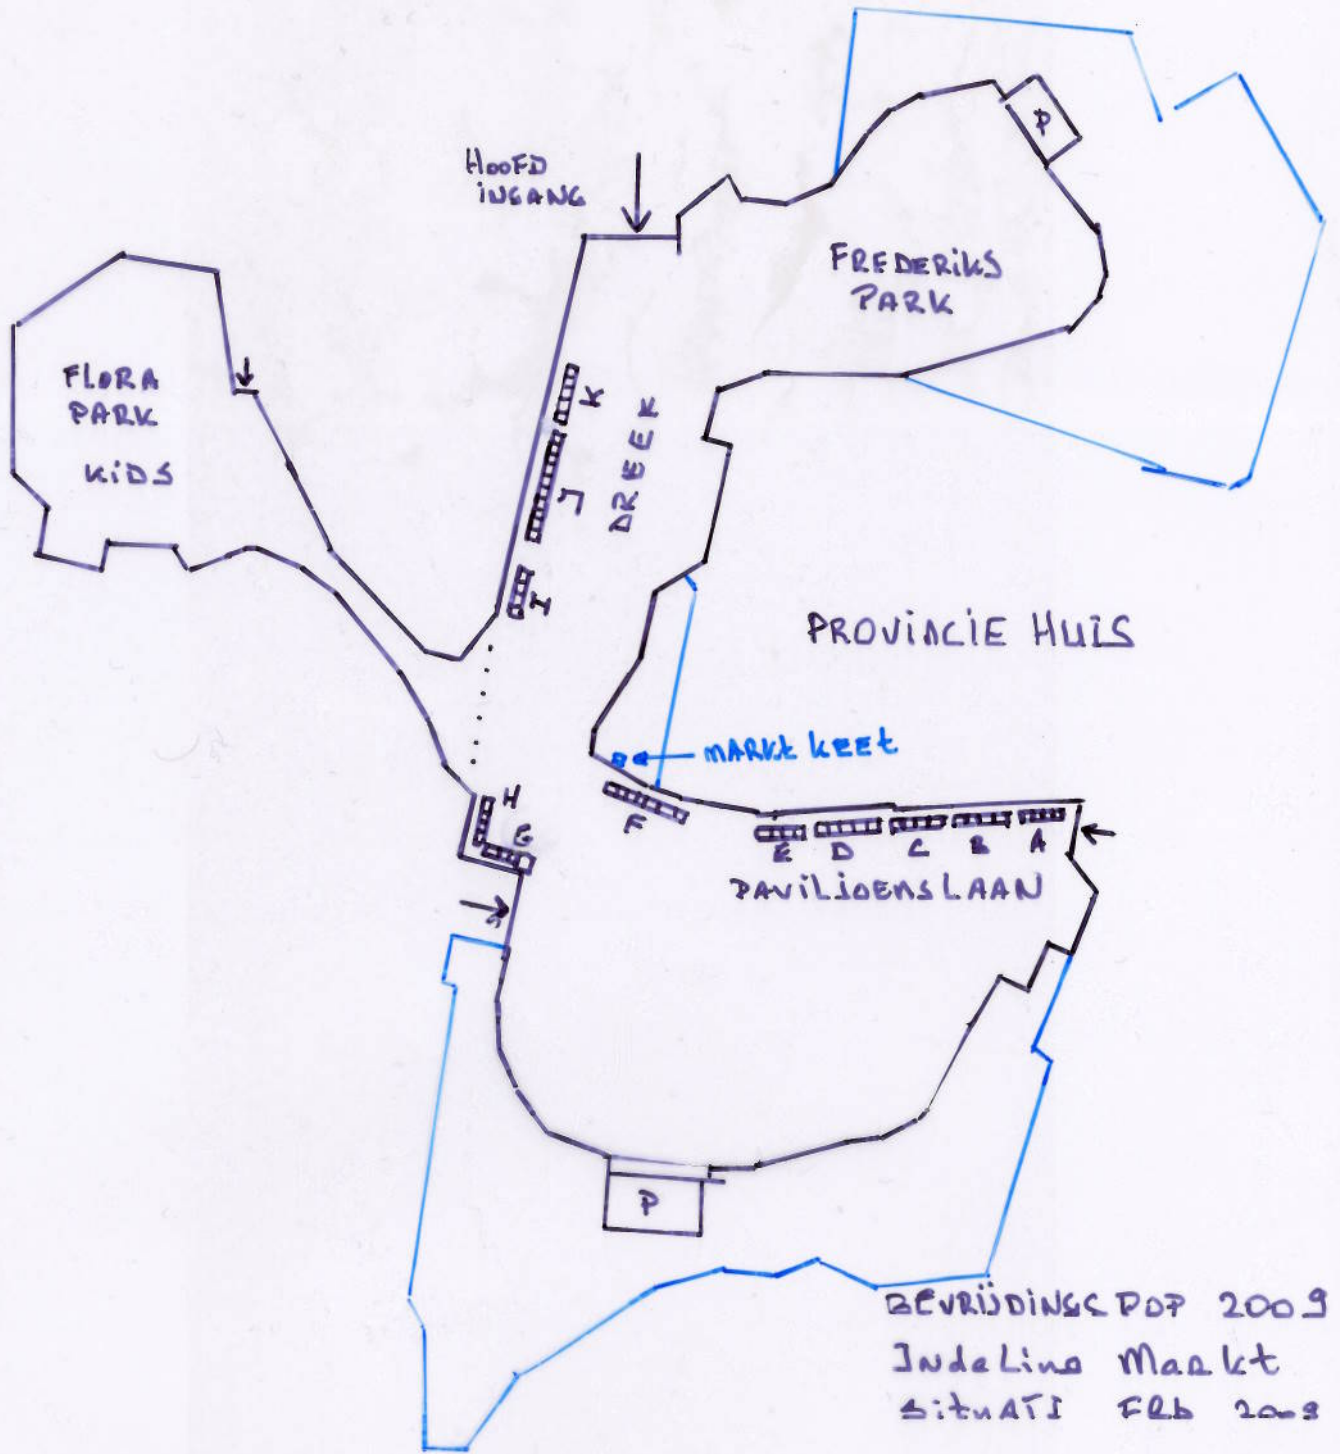 P
HOOFD
INGANG
FREDERIKS
PARK
FLORA
PARK
KIDS
K
DREEK
J
I
PROVINCIE HUIS
MARKt KEEt
H
G
F
E
D
C
B
A
PAVILJOENSLAAN
P
BEVRIJDINGSPOP 2009
IndeLing Markt
SituATI FEb 2009